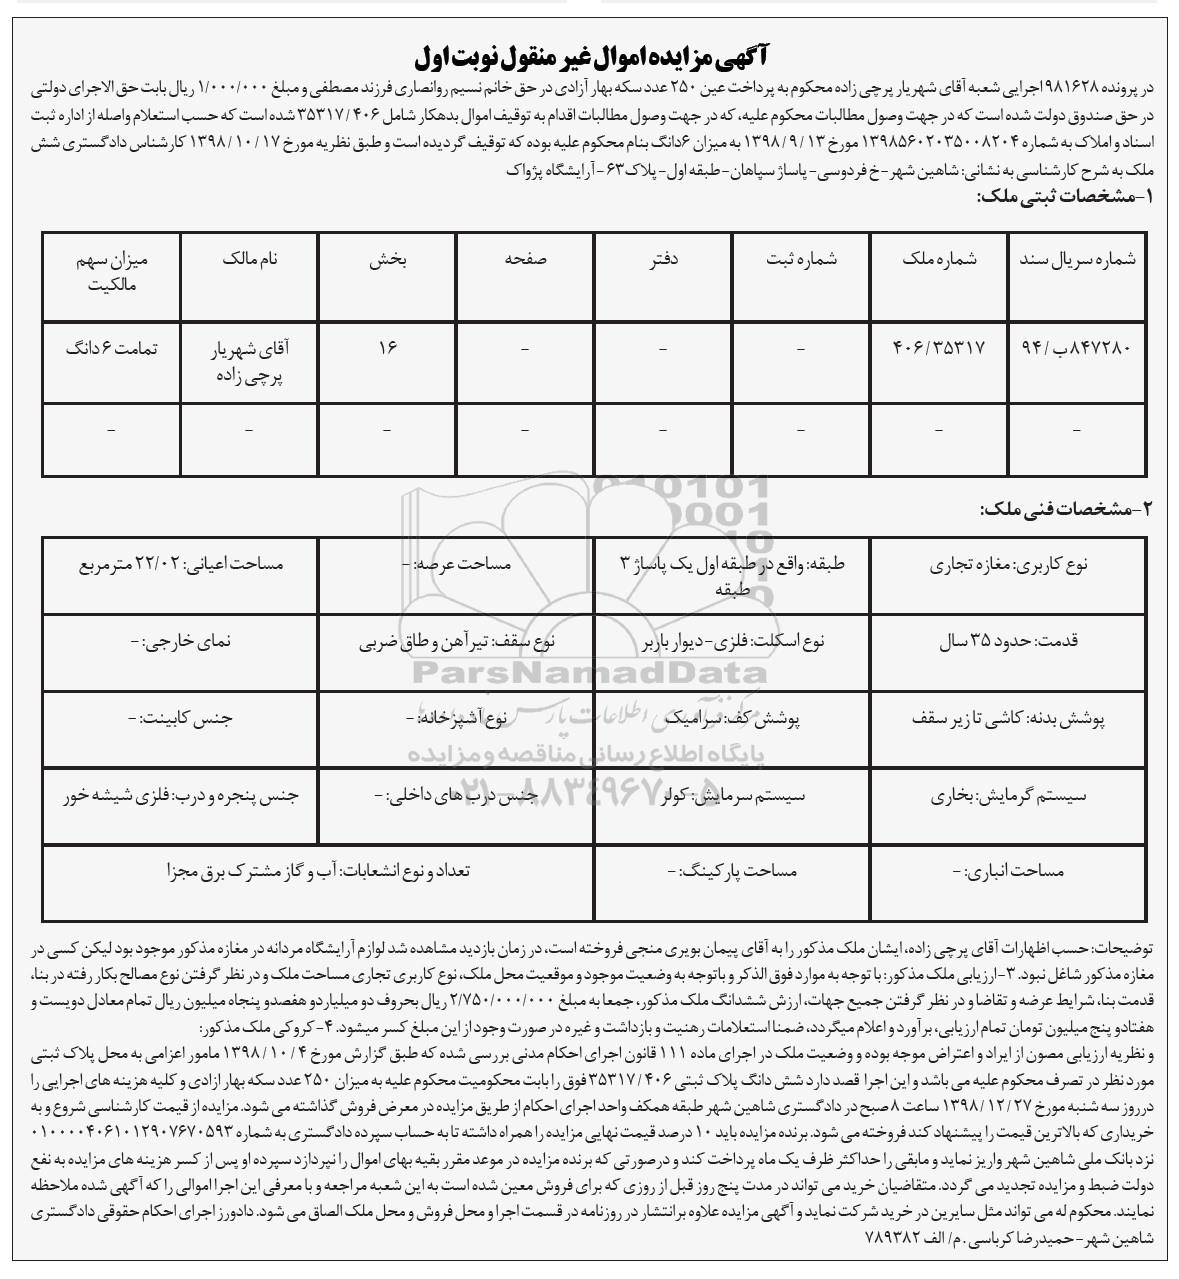 آگهی مزایده اموال غیر منقول نوبت اول
در پرونده ۹۸۱۶۲۸ اجرایی شعبه آقای شهریار پرچی زاده محکوم به پرداخت عین ۲۵۰ عدد سکه بهار آزادی در حق خانم نسیم روانصاری فرزند مصطفی و مبلغ ۱/۰۰۰/۰۰۰ ریال بابت حق الاجرای دولتی
در حق صندوق دولت شده است که در جهت وصول مطالبات محکوم علیه، که در جهت وصول مطالبات اقدام به توقیف اموال بدهکار شامل ۳۵۳۱۷/۴۰۶ شده است که حسب استعلام واصله از اداره ثبت
اسناد و املاک به شماره ۱۳۹۸۵۶۰۲۰۳۵۰۰۸۲۰۴ مورخ ۱۳۹۸/۹/۱۳ به میزان ۶دانگ بنام محکوم علیه بوده که توقیف گردیده است و طبق نظریه مورخ ۱۳۹۸/۱۰/۱۷ کارشناس دادگستری شش
ملک به شرح کارشناسی به نشانی: شاهین شهر-خ فردوسی- پاساژ سپاهان-طبقه اول- پلاک۶۳ -آرایشگاه پژواک
۱-مشخصات ثبتی ملک:
شماره سریال سند	شماره ملک	شماره ثبت	دفتر	صفحه	بخش	نام مالک	میزان سهم مالکیت
۸۴۷۲۸۰ب/۹۴	۴۰۶/۳۵۳۱۷	-	-	-	۱۶	آقای شهریار پرچی زاده	تمامت ۶دانگ
-	-	-	-	-	-	-	-
۲-مشخصات فنی ملک:
نوع کاربری: مغازه تجاری	طبقه: واقع در طبقه اول یک پاساژ ۳ طبقه	مساحت عرصه: -	مساحت اعیانی: ۲۲/۰۲ مترمربع
قدمت: حدود ۳۵ سال	نوع اسکلت: فلزی-دیوار باربر	نوع سقف: تیرآهن و طاق ضربی	نمای خارجی: -
پوشش بدنه: کاشی تا زیر سقف	پوشش کف: سرامیک	نوع آشپزخانه: -	جنس کابینت: -
سیستم گرمایش: بخاری	سیستم سرمایش: کولر	جنس درب های داخلی: -	جنس پنجره و درب: فلزی شیشه خور
مساحت انباری: -	مساحت پارکینگ: -	تعداد و نوع انشعابات: آب و گاز مشترک برق مجزا
ParsNamadData
پایگاه اطلاع رسانی مناقصه و مزایده
۰۲۱-۸۸۳۴۹۶۷۰-۵
توضیحات: حسب اظهارات آقای پرچی زاده، ایشان ملک مذکور را به آقای پیمان بویری منجی فروخته است، در زمان بازدید مشاهده شد لوازم آرایشگاه مردانه در مغازه مذکور موجود بود لیکن کسی در
مغازه مذکور شاغل نبود. ۳-ارزیابی ملک مذکور: با توجه به موارد فوق الذکر و باتوجه به وضعیت موجود و موقعیت محل ملک، نوع کاربری تجاری مساحت ملک و در نظر گرفتن نوع مصالح بکار رفته در بنا،
قدمت بنا، شرایط عرضه و تقاضا و در نظر گرفتن جمیع جهات، ارزش ششدانگ ملک مذکور، جمعا به مبلغ ۲/۷۵۰/۰۰۰/۰۰۰ ریال بحروف دو میلیارد و هفصدو پنجاه میلیون ریال تمام معادل دویست و
هفتادو پنج میلیون تومان تمام ارزیابی، برآورد و اعلام میگردد، ضمنا استعلامات رهنیت و بازداشت و غیره در صورت وجود از این مبلغ کسر میشود. ۴-کروکی ملک مذکور:
و نظریه ارزیابی مصون از ایراد و اعتراض موجه بوده و وضعیت ملک در اجرای ماده ۱۱۱ قانون اجرای احکام مدنی بررسی شده که طبق گزارش مورخ ۱۳۹۸/۱۰/۴ مامور اعزامی به محل پلاک ثبتی
مورد نظر در تصرف محکوم علیه می باشد و این اجرا قصد دارد شش دانگ پلاک ثبتی ۳۵۳۱۷/۴۰۶ فوق را بابت محکومیت محکوم علیه به میزان ۲۵۰ عدد سکه بهار ازادی و کلیه هزینه های اجرایی را
درروز سه شنبه مورخ ۱۳۹۸/۱۲/۲۷ ساعت ۸ صبح در دادگستری شاهین شهر طبقه همکف واحد اجرای احکام از طریق مزایده در معرض فروش گذاشته می شود. مزایده از قیمت کارشناسی شروع و به
خریداری که بالاترین قیمت را پیشنهاد کند فروخته می شود. برنده مزایده باید ۱۰ درصد قیمت نهایی مزایده را همراه داشته تا به حساب سپرده دادگستری به شماره ۰۱۰۰۰۰۴۰۶۱۰۱۲۹۰۷۶۷۰۵۹۳
نزد بانک ملی شاهین شهر واریز نماید و مابقی را حداکثر ظرف یک ماه پرداخت کند و درصورتی که برنده مزایده در موعد مقرر بقیه بهای اموال را نپردازد سپرده او پس از کسر هزینه های مزایده به نفع
دولت ضبط و مزایده تجدید می گردد. متقاضیان خرید می تواند در مدت پنج روز قبل از روزی که برای فروش معین شده است به این شعبه مراجعه و با معرفی این اجرا اموالی را که آگهی شده ملاحظه
نمایند. محکوم له می تواند مثل سایرین در خرید شرکت نماید و آگهی مزایده علاوه برانتشار در روزنامه در قسمت اجرا و محل فروش و محل ملک الصاق می شود. دادورز اجرای احکام حقوقی دادگستری
شاهین شهر-حمیدرضا کرباسی. م/ الف ۷۸۹۳۸۲